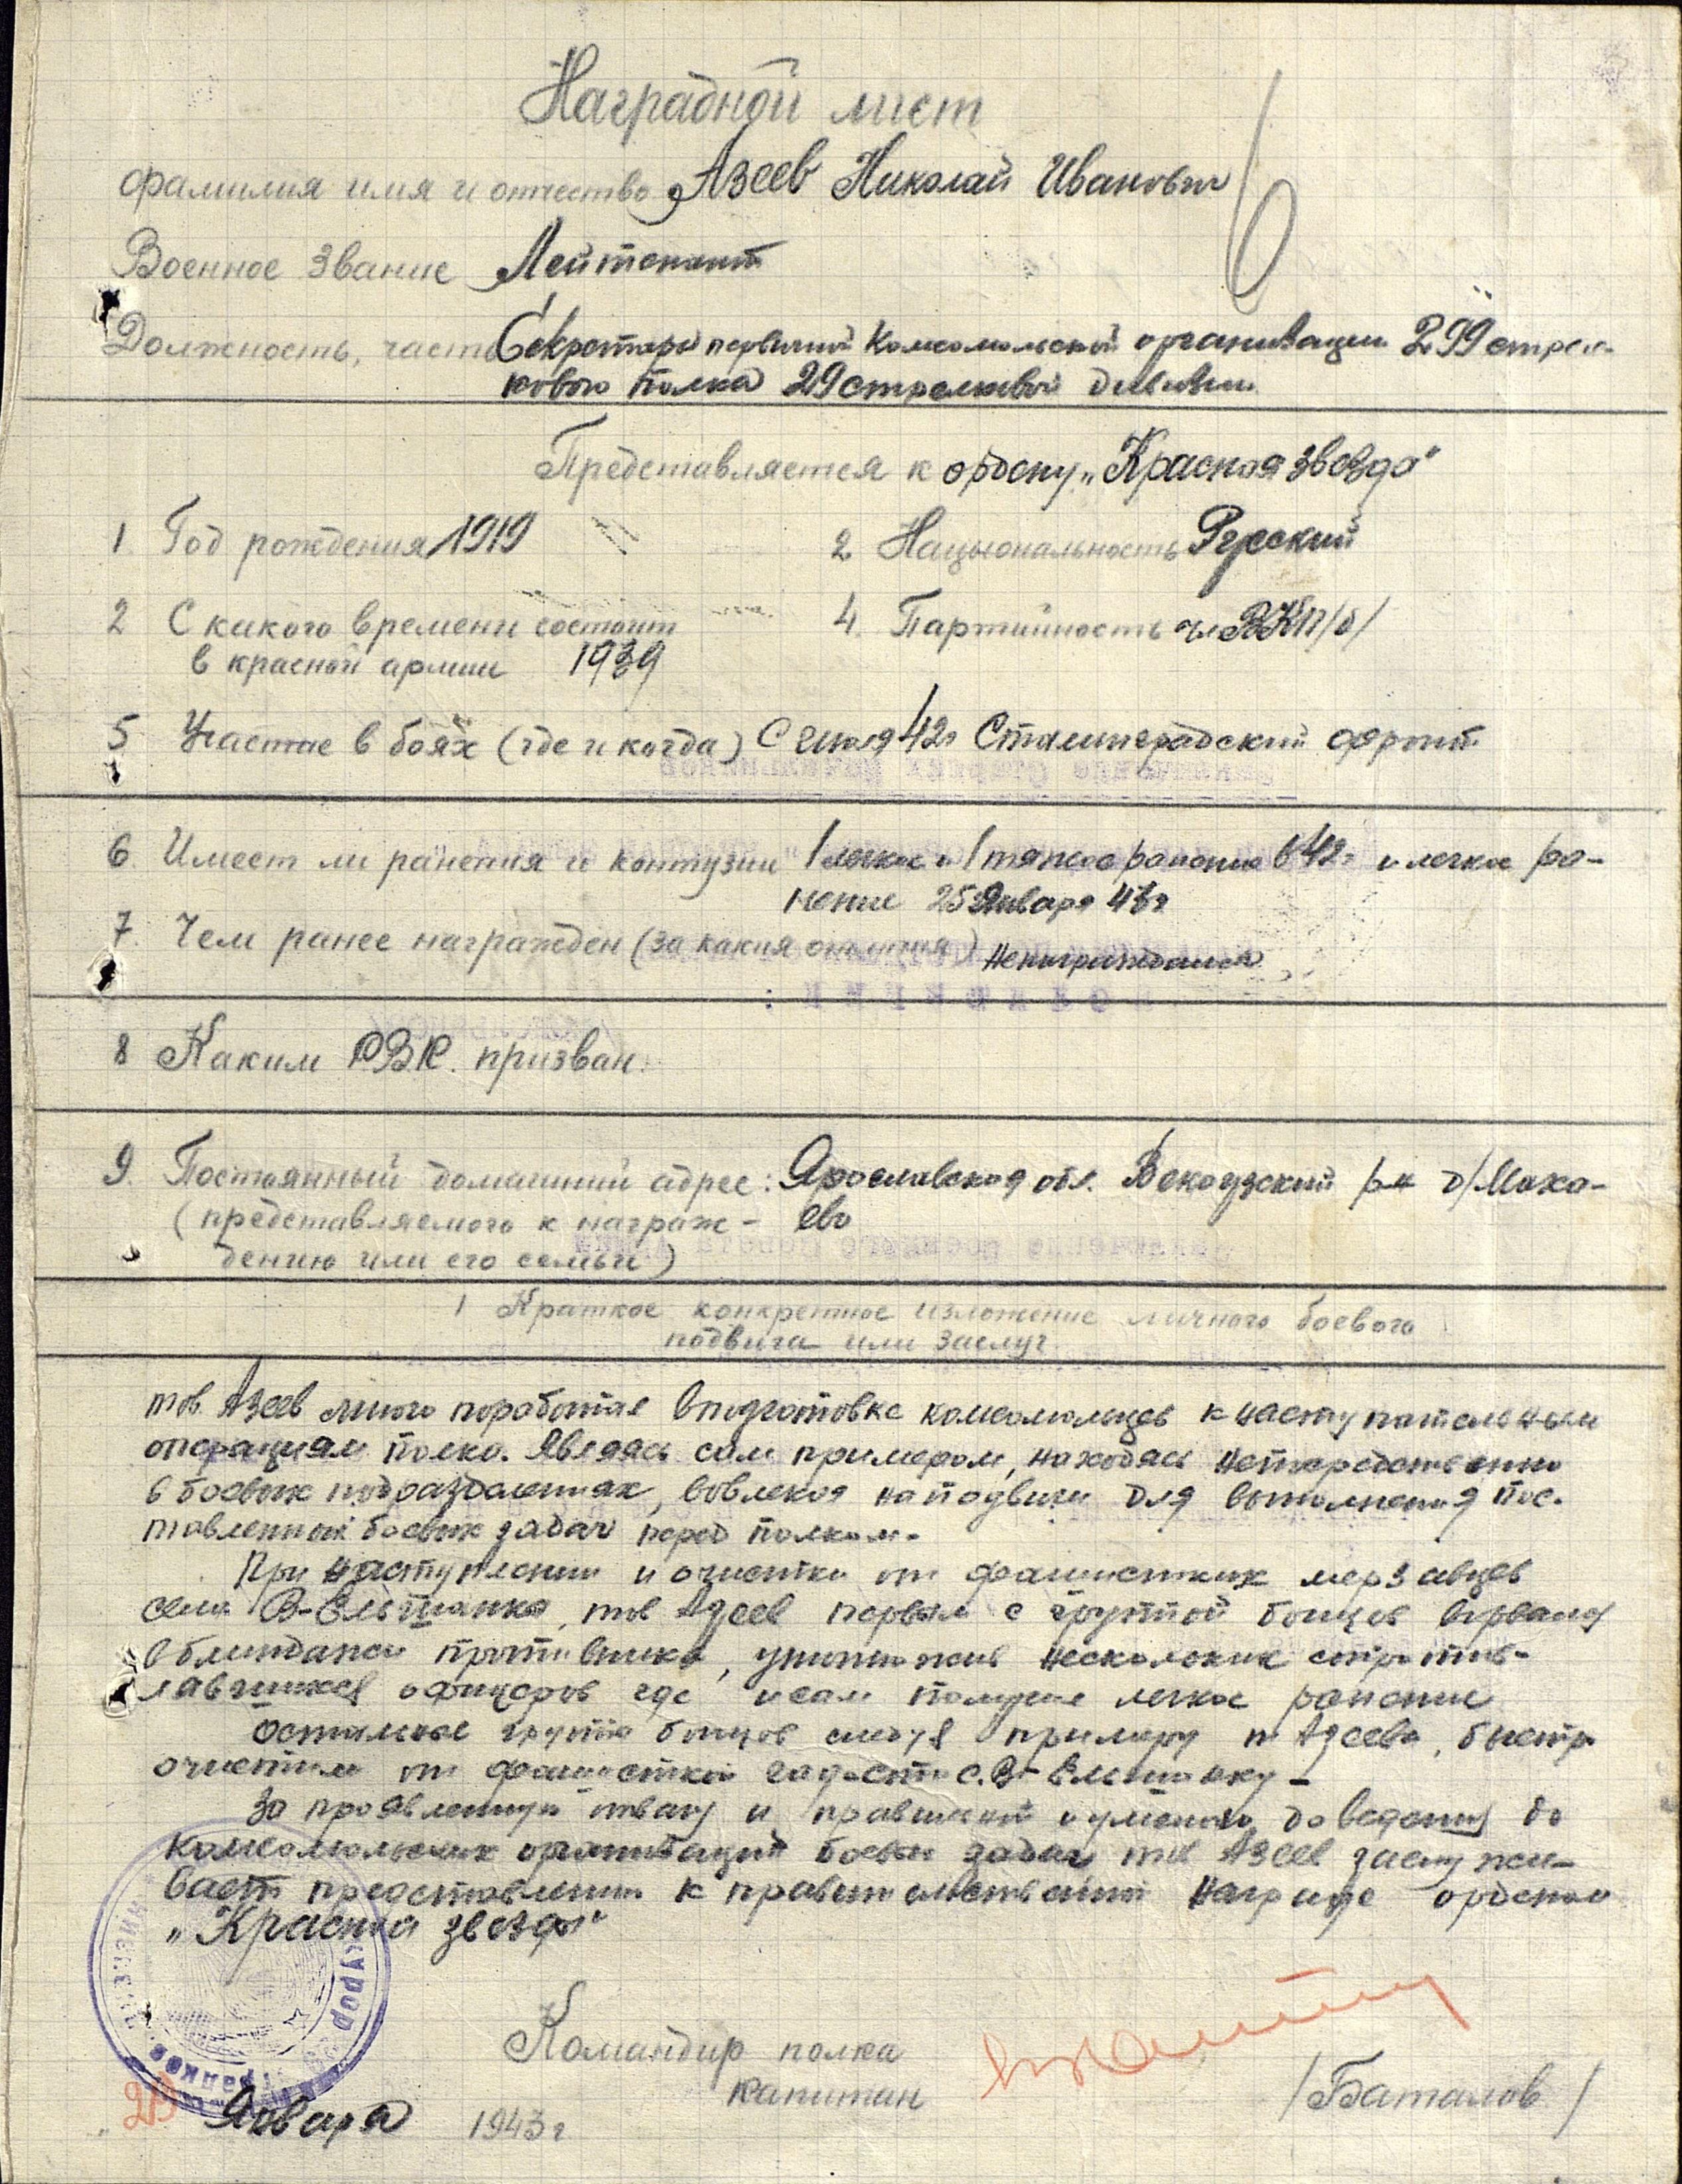 Наградной лист
6
Фамилия имя и отчество Азеев Николай Иванович
Военное звание Лейтенант
Должность, часть Секретарь первичной Комсомольской организации 299 стрел-
кового полка 29 стрелковой дивизии
Представляется к ордену „Красная звезда"
1 Год рождения 1919 2 Нацыональность Русский
2 С какого времени состоит 4. Партийность чл ВКП/б/
в красной армии 1939
5 Участие в боях (где и когда) С июля 42г Сталинградский фронт
6. Имеет ли ранения и контузии 1 легкое и 1 тяжкое ранение в 42г и легкое ра-
нение 25 Января 43г
7. Чем ранее награжден (за какия отличия) Ненаграждался
8 Каким РВК. призван.
9. Постоянный домашний адрес: Ярославская обл. р-н д/Махо-
(представляемого к награж- ево
дению или его семьи)
1 Краткое конкретное изложение личного боевого
подвига или заслуг.
тов. Азеев много поработал в подготовке комсомольцев к наступательным
операциям полка. Являясь сам примером, находясь непосредственно
в боевых подразделениях, вовлекая на подвиги для выполнения пос-
тавленных боевых задач перед полком.
При наступлении и очистки от фашистких мерзавцев
села В-Ельшанка, тов Азеев первым с группой бойцов ворвался
в блиндажи противника, уничтожив нескольких сопротив-
лявшихся офицеров где и сам получил легкое ранение
Остальная группа бойцов следуя примеру т Азеева, быстро
очистили от фашисткой гадости с. В-Ельшанку-
За проявленную отвагу и правильной и умелого доведения до
комсомольских организаций боевых задач тов Азеев заслужи-
вает представления к правительственной награде орденом
„Красной звезды"
Командир полка
капитан /Баталов/
29 Января 1943г